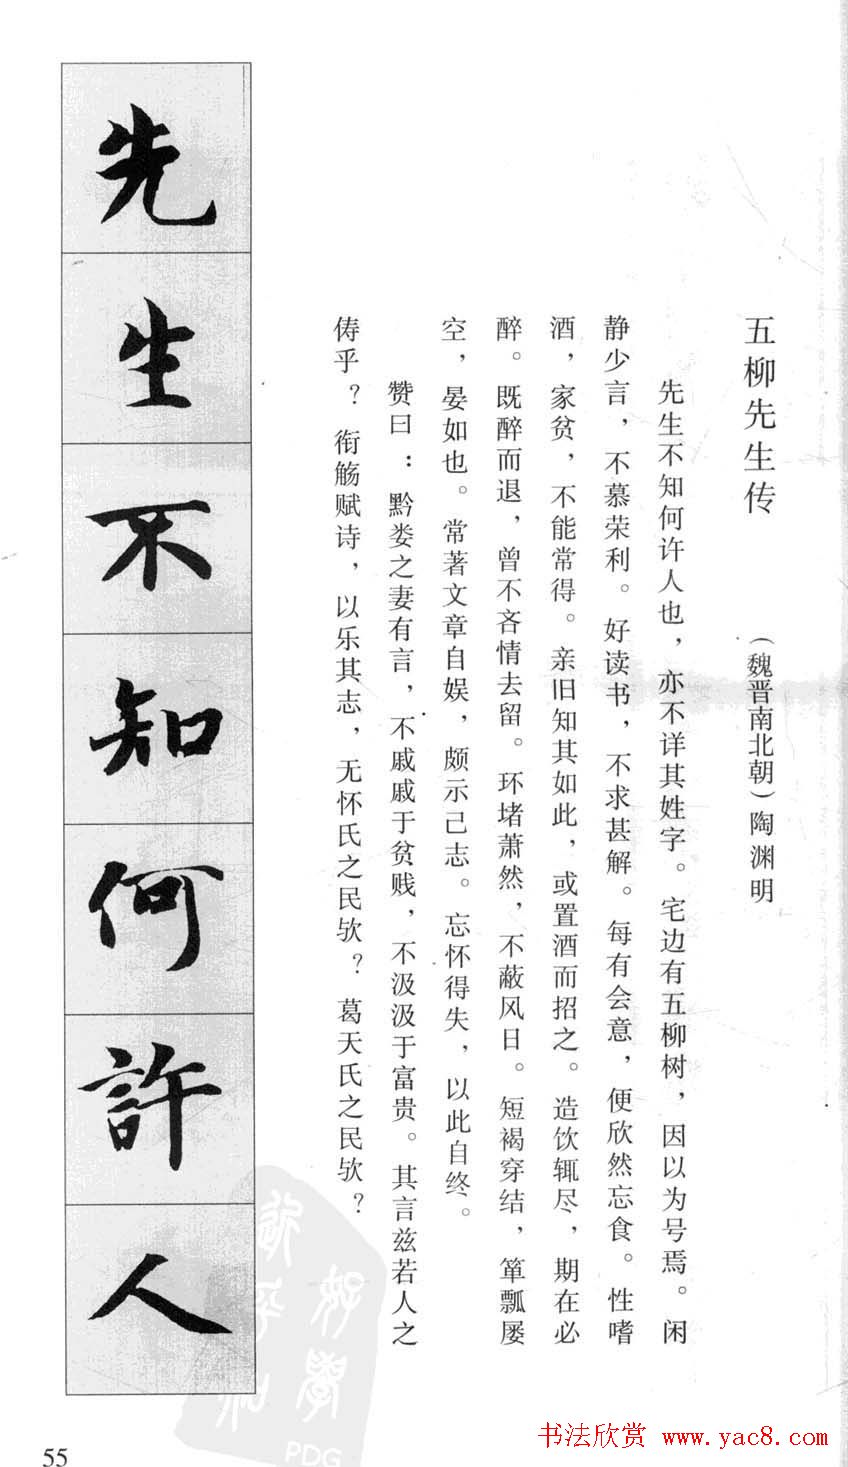 五柳先生传 （魏晋南北朝）陶渊明
先生不知何许人也，亦不详其姓字。宅边有五柳树，因以为号焉。闲
静少言，不慕荣利。好读书，不求甚解。每有会意，便欣然忘食。性嗜
酒，家贫，不能常得。亲旧知其如此，或置酒而招之。造饮辄尽，期在必
醉。既醉而退，曾不吝情去留。环堵萧然，不蔽风日。短褐穿结，箪瓢屡
空，晏如也。常著文章自娱，颇示己志。忘怀得失，以此自终。
赞曰：黔娄之妻有言，不戚戚于贫贱，不汲汲于富贵。其言兹若人之
俦乎？衔觞赋诗，以乐其志，无怀氏之民欤？葛天氏之民欤？
先生不知何許人
55
好學
PDG
书法欣赏 www.yac8.com